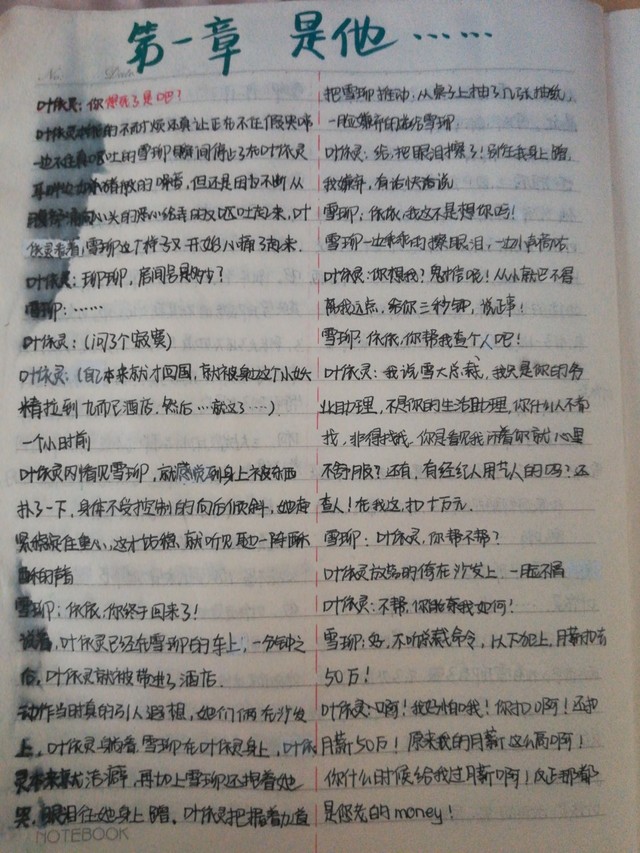 第一章 是他……
No.
Date
叶依灵：你想死了是吧？
叶依灵的不耐烦还真让正在不在假哭
一边不在真呕吐的雪聊瞬间停止了在叶依灵
耳边的噪音，但还是因为不断从
小头的恶心给弄的又呕吐起来，叶
依灵看着，雪聊这个样子又开始心痛了起来．
叶依灵：聊聊，房间号是多少？
雪聊：……
叶依灵：（问了个寂寞）
叶依灵：（自己本来就才回国，就被身边这个小妖
精拉到 酒店．然后…就这了……）
一个小时前
叶依灵闪情看见雪聊，就感觉到身上被东西
扑了一下，身体不受控制的向后倾斜，她赶
紧稳定住重心，这才站稳．就听见耳边一阵酥
酥的声音
雪聊：依依，你终于回来了！
说着，叶依灵已经在雪聊的车上，一分钟之
后，叶依灵就被带进了酒店．
动作当时真的引人遐想，她们俩在沙发
上，叶依灵躺着雪聊在叶依灵身上，叶依
灵本来就有洁癖，再加上雪聊还抱着她
哭，眼泪往她身上蹭，叶依灵把握着力道
NOTEBOOK
把雪聊推动．从桌子上抽了几张抽纸，
一脸嫌弃的递给雪聊
叶依灵：给，把眼泪擦了！别往我身上蹭，
我嫌弃，有话快当说
雪聊：依依，我这不是想你吗！
雪聊一边乖乖的擦眼泪，一边小声嘀咕
叶依灵：你想我？鬼才信呢！从小就巴不得
离我远点，给你三秒钟，说正事！
雪聊：依依，你帮我查个人吧！
叶依灵：我说雪大总裁，我只是你的务
业助理，不是你的生活助理，你什么人不看
找，非得找我．你是看见我闲着你就心里
不舒服？还有，有经纪人用节人的吗？还
查人！在我这，扣十万元．
雪聊：叶依灵，你帮不帮？
叶依灵放荡的倚在沙发上，一脸不屑
叶依灵：不帮，你能奈我如何？
雪聊：好，不听总裁命令，以下犯上，月薪扣
50万！
叶依灵：啊！我好怕哦！你扣啊！还扣
月薪50万！原来我的月薪这么高啊！
你什么时候给我过月薪啊！反正那都
是你老的money！